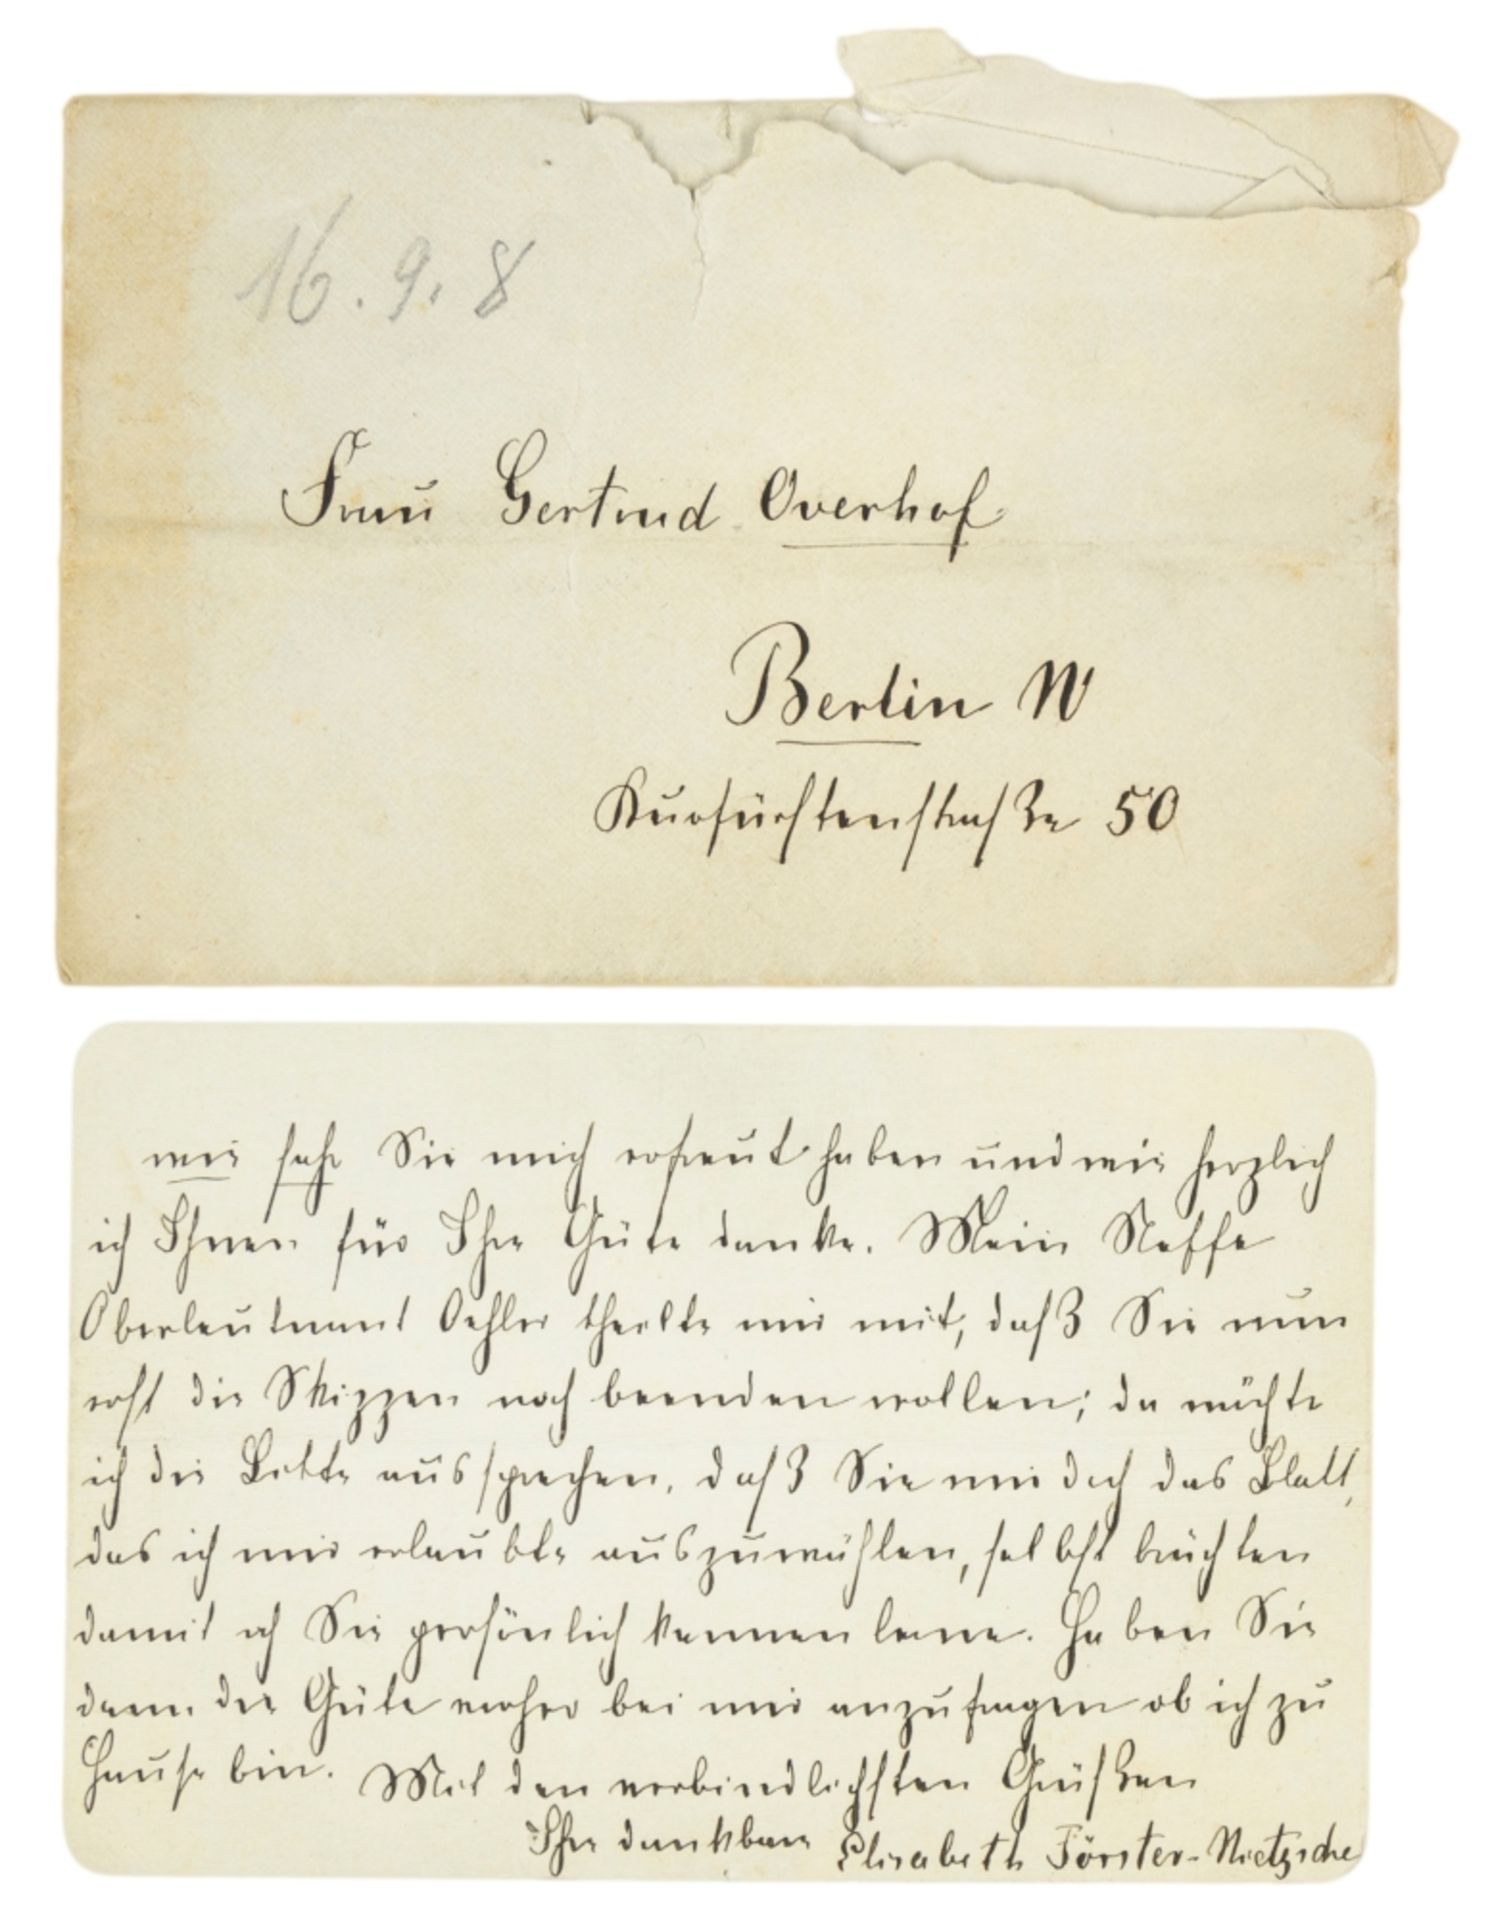 16. 9. 8
Frau Gertrud Overhof
Berlin W
Kurfürstenstraße 50
wie sehr Sie mich erfreut haben und wie herzlich
ich Ihnen für Ihre Güte danke. Mein Neffe
Oberleutnant Oehler theilte mir mit, daß Sie nun
erst die Skizzen noch beenden wollen; da möchte
ich die Bitte aussprechen, daß Sie mir doch das Blatt,
das ich mir erlaubte auszuwählen, selbst brächten
damit ich Sie persönlich kennen lerne. Haben Sie
dann die Güte vorher bei mir anzufragen ob ich zu
Hause bin. Mit den verbindlichsten Grüßen
Ihre dankbare Elisabeth Förster-Nietzsche